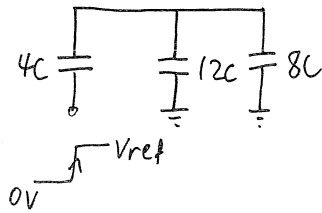 4C
12C
8C
Vref
0V